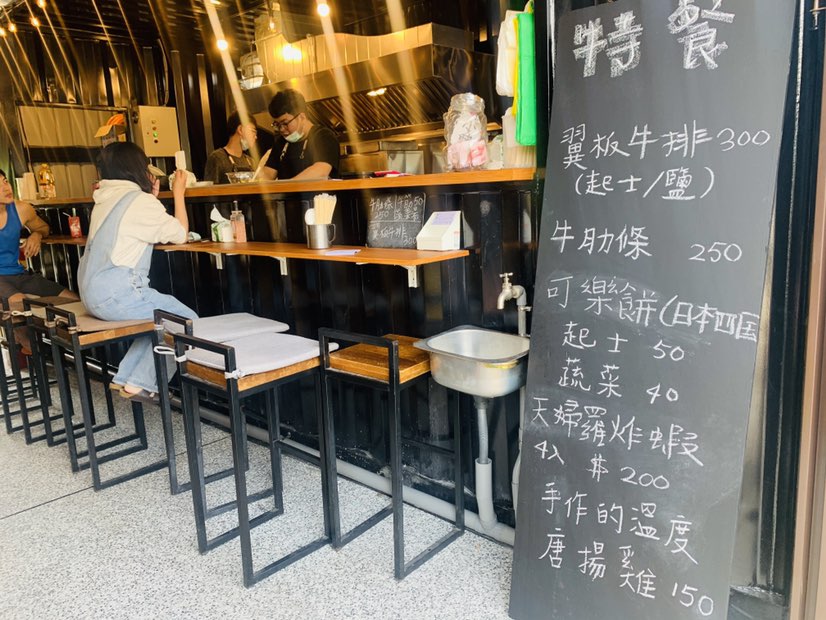 特餐
翼板牛排300
(起士/鹽)
牛肋條 250
可樂餅(日本四国
起士 50
蔬菜 40
天婦羅炸蝦
4入 $200
手作的溫度
唐揚雞 150